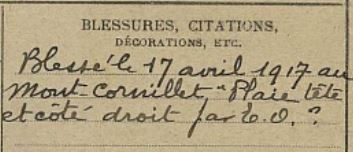 BLESSURES, CITATIONS,
DÉCORATIONS, ETC.
Blessé le 17 avril 1917 au
Mont-Cornillet "Plaie tête
et côté droit par E.O. ?